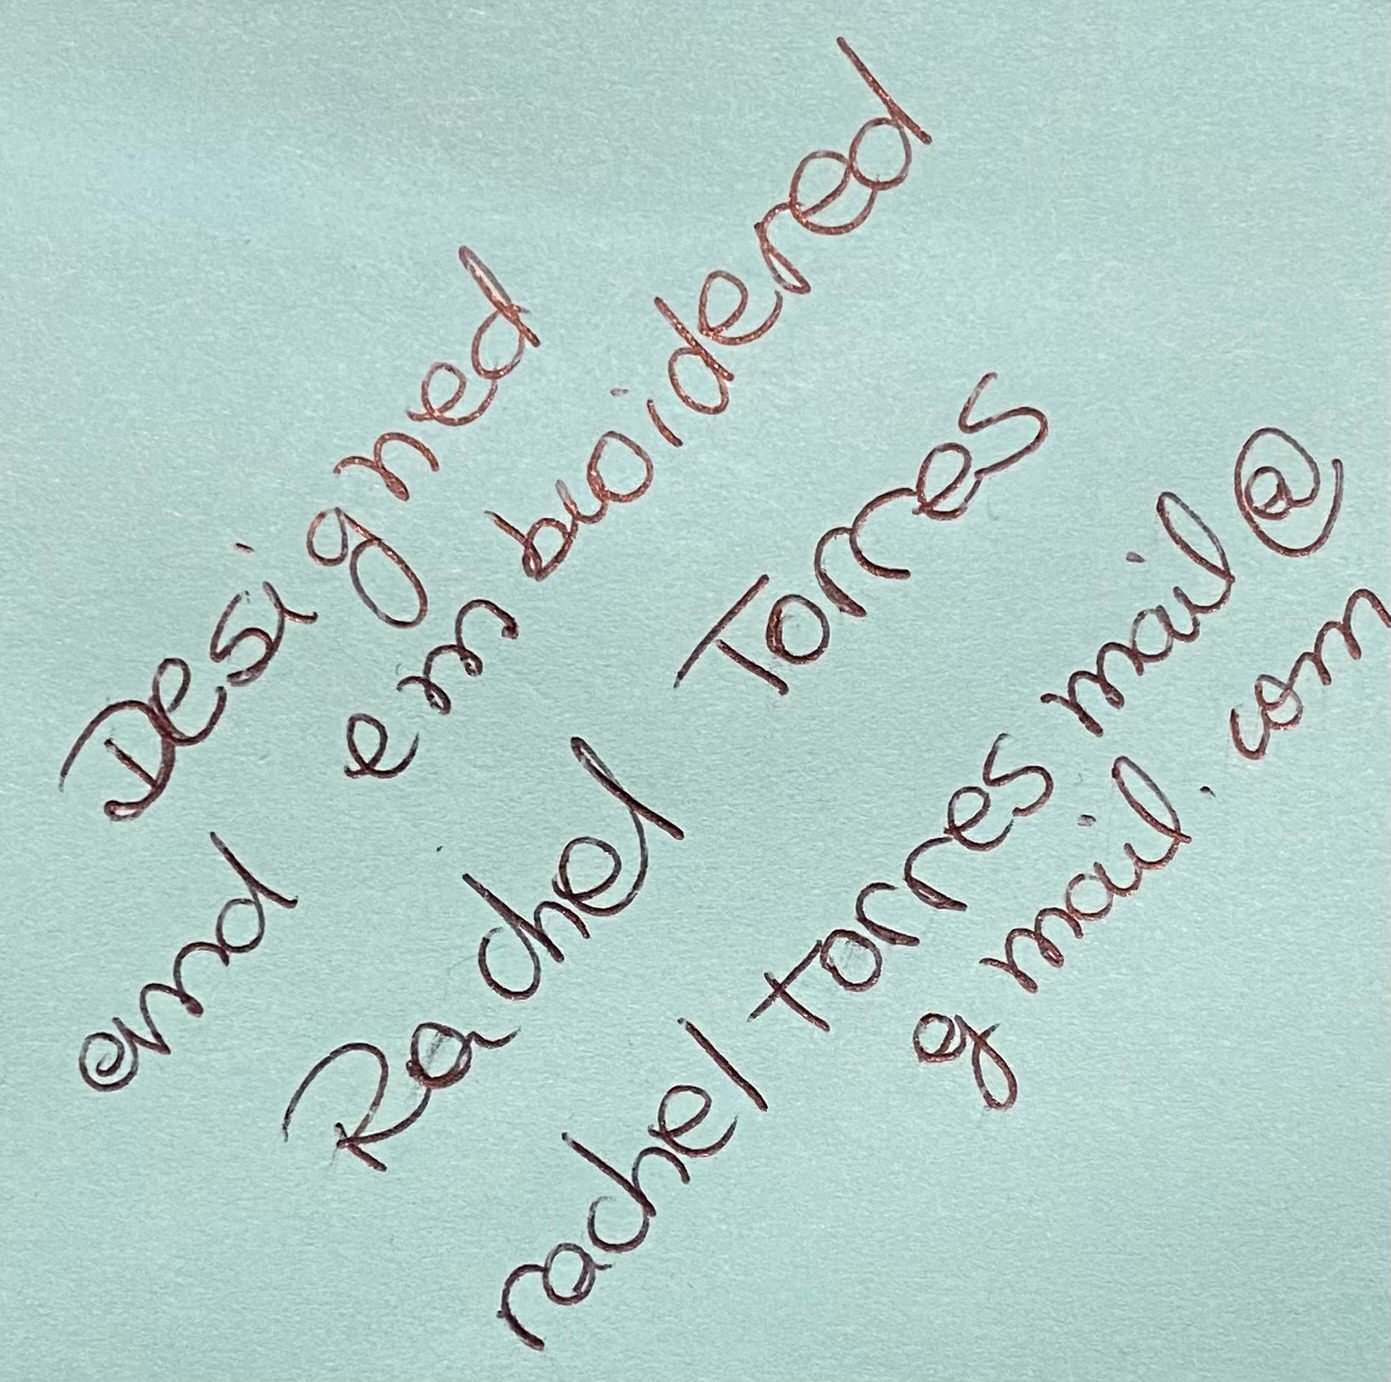 Designed
and embroidered
Rachel Torres
racheltorresmail@
gmail.com